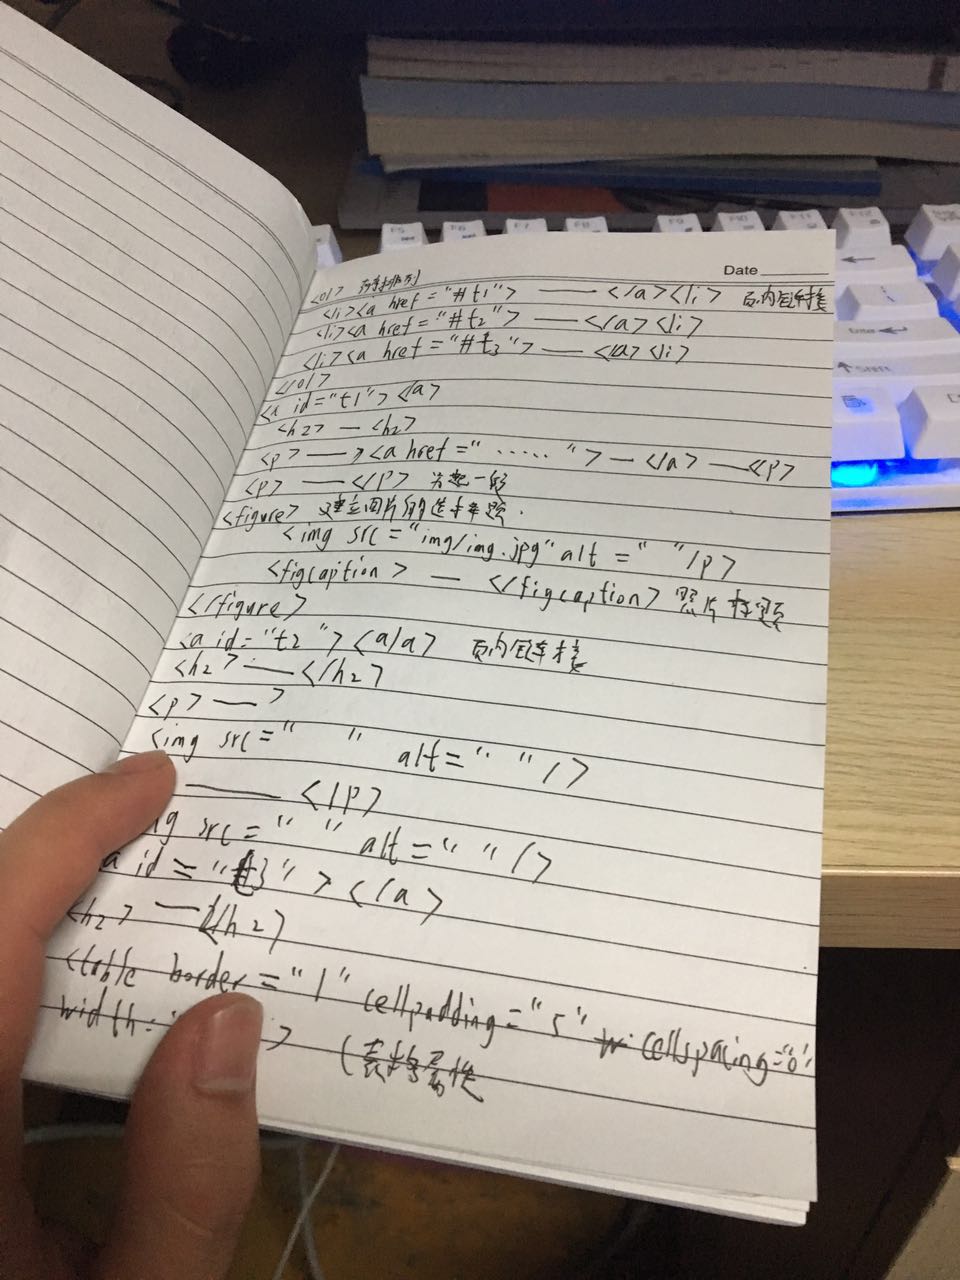 F5
F6
F7
F8
F9
F10
F11
F12
Enter
Shift
Date
<ol> 有序排列
<li><a href="#t1"> — </a><li> 页内链接
<li><a href="#t2"> — </a><li>
<li><a href="#t3"> — </a><li>
</ol>
<a id="t1"></a>
<h2> — <h2>
<p> — <a href="......"> — </a> — <p>
<p> — </p>
<figure> 建立图片的 标题.
<img src="img/img.jpg" alt=" "/p>
<figcaption> — </figcaption> 照片标题
</figure>
<a id="t2"><a/a> 页内链接
<h2> — </h2>
<p> —>
<img src=" " alt=" "/>
— </p>
src=" " alt=" "/>
a id="t3"></a>
<h2> — </h2>
<table border="1" cellpadding="5" cellspacing="0"
width: > (表格属性